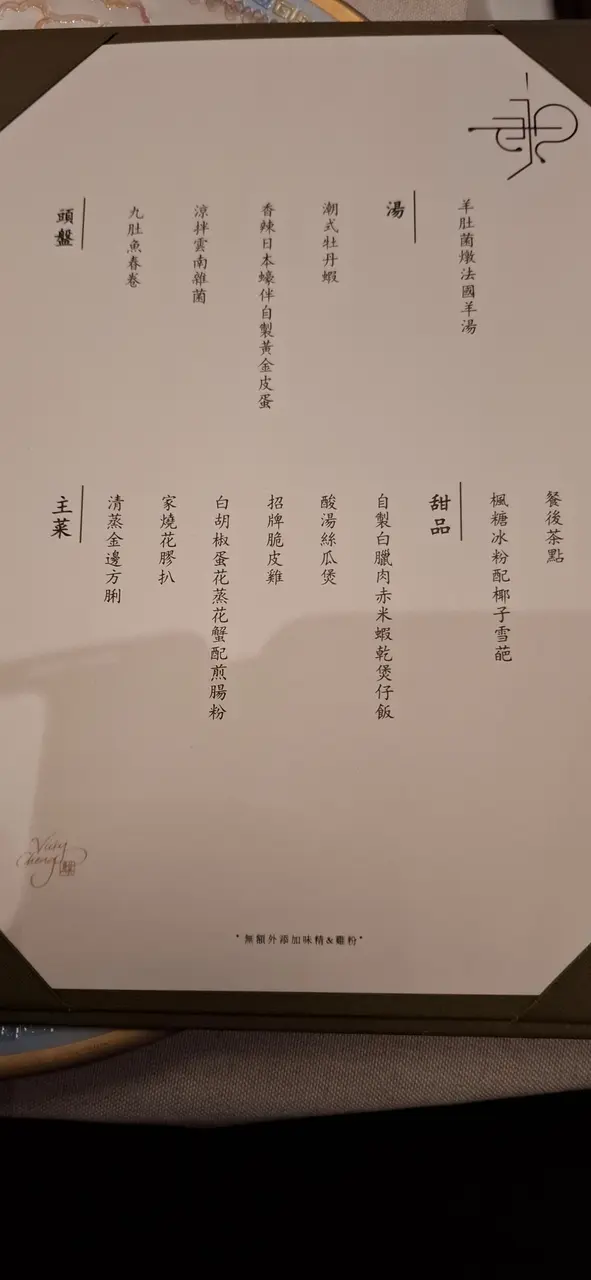 頭盤
九肚魚春卷
涼拌雲南雜菌
香辣日本蠔伴自製黃金皮蛋
潮式牡丹蝦
湯
羊肚菌燉法國羊湯
主菜
清蒸金邊方脷
家燒花膠扒
白胡椒蛋花蒸花蟹配煎腸粉
招牌脆皮雞
酸湯絲瓜煲
自製白臘肉赤米蝦乾煲仔飯
甜品
楓糖冰粉配椰子雪葩
餐後茶點
Vicky
Cheng
*無額外添加味精&雞粉*